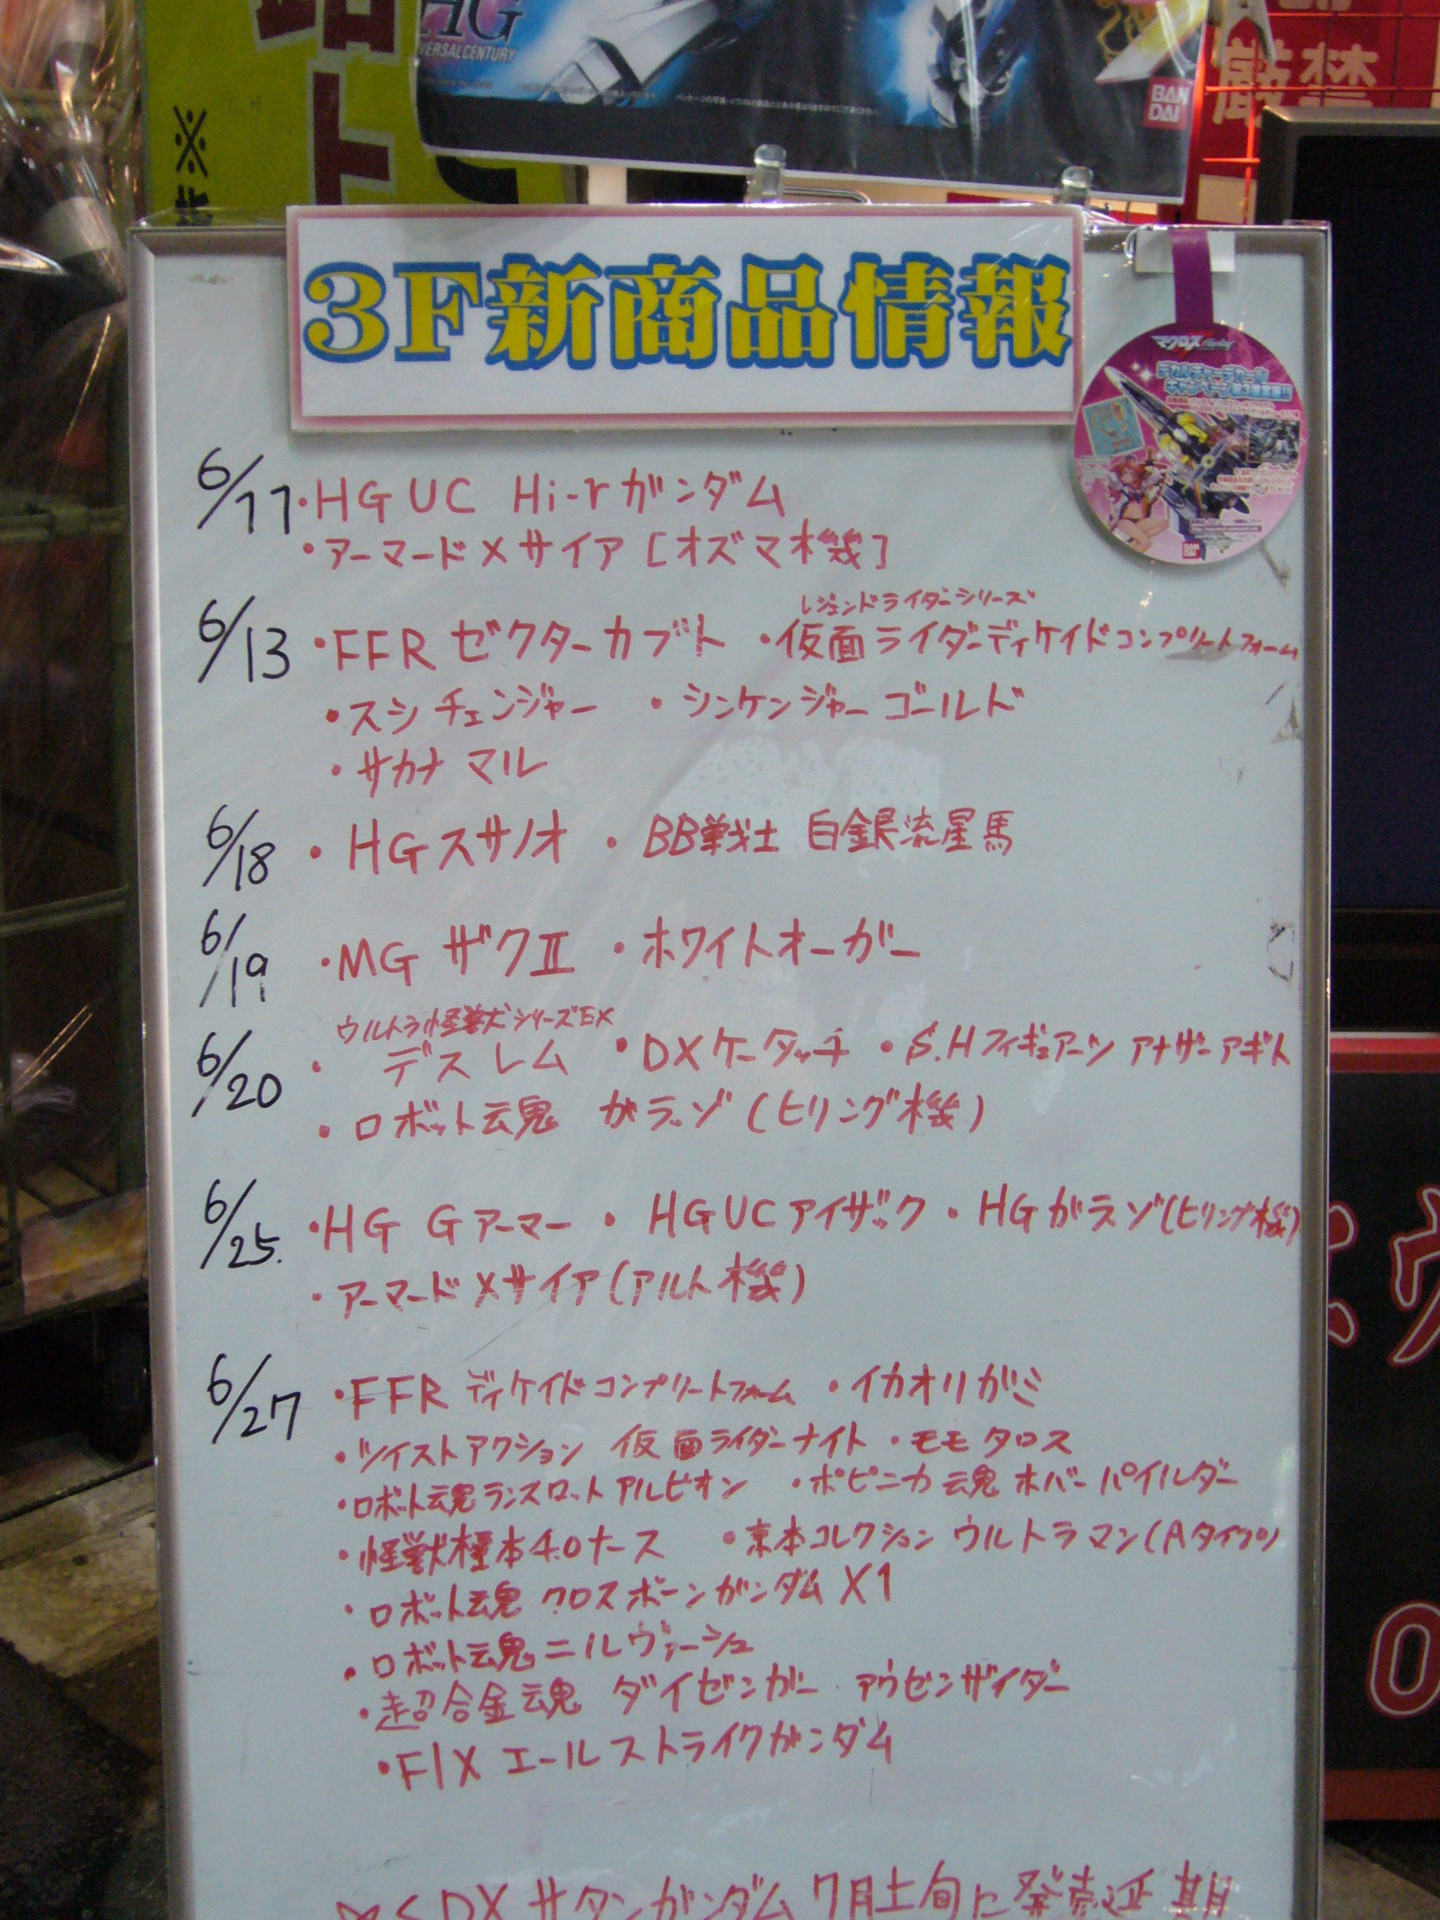 HG
VERSAL CENTURY
BAN
DAI
厳禁
※
3F新商品情報
マクロス
デカルチャーデカール
BAN
DAI
6/11・HGUC Hi-νガンダム
・アーマードメサイア[オズマ機]
レジェンドライダーシリーズ
6/13・FFR ゼクターカブト ・仮面ライダーディケイドコンプリートフォーム
・スシチェンジャー ・シンケンジャーゴールド
・サカナマル
6/18・HGスサノオ ・BB戦士 白銀流星馬
6/19・MG ザクⅡ ・ホワイトオーガー
ウルトラ怪獣シリーズEX
6/20・デスレム ・DXケータッチ ・S.Hフィギュアーツ アナザーアギト
・ロボット魂 ガラッゾ(ヒリング機)
6/25.・HG Gアーマー ・HGUCアイザック ・HGガラッゾ(ヒリング機)
・アーマードメサイア(アルト機)
6/27・FFR ディケイドコンプリートフォーム ・イカオリガミ
・ツイストアクション 仮面ライダーナイト ・モモタロス
・ロボット魂ランスロットアルビオン ・ポピニカ魂 ホバーパイルダー
・怪獣標本4.0ナース ・京本コレクション ウルトラマン(Aタイプ)
・ロボット魂 クロスボーンガンダムX1
・ロボット魂ニルヴァーシュ
・超合金魂 ダイゼンガー アウゼンザイダー
・FIX エールストライクガンダム
DX サタンガンダム 7月上旬に発売延期